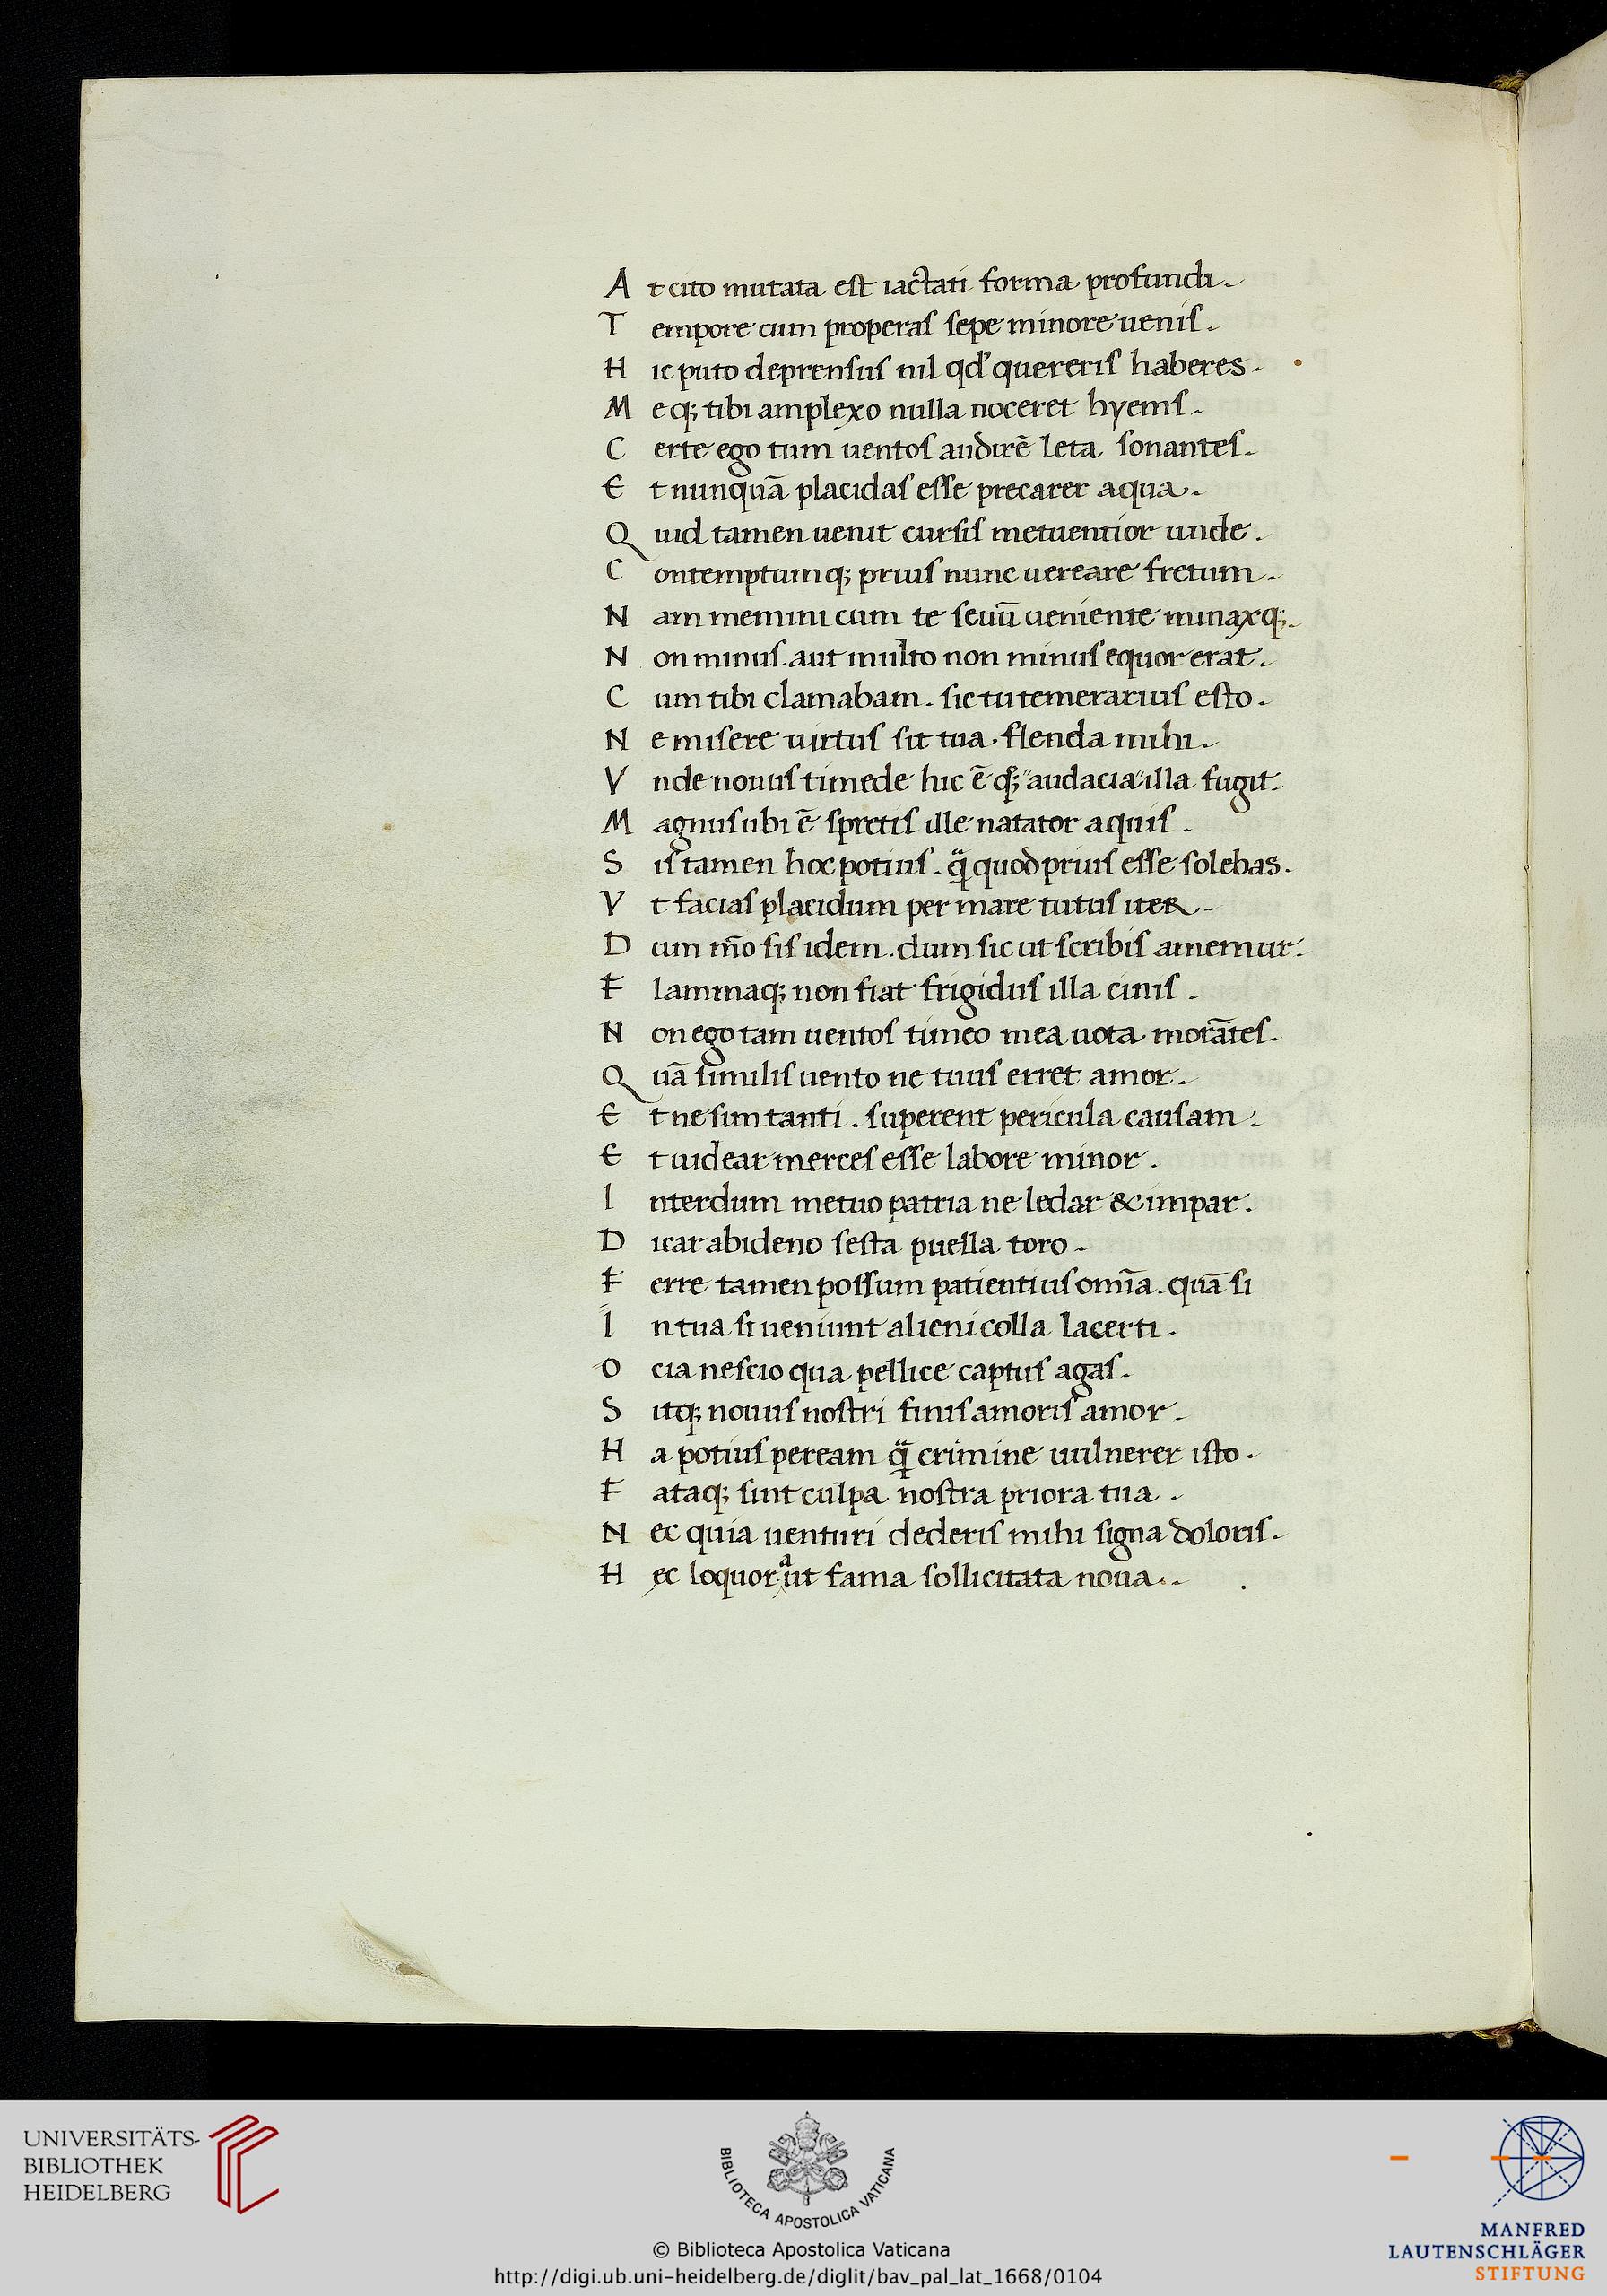 At cito mutata est iactati forma profundi.
Tempore cum properas sepe minore uenis.
Hic puto deprensus nil qd' quereris haberes.
Meq; tibi amplexo nulla noceret hyems.
Certe ego tum uentos audirē leta sonantes.
Et nunquā placidas esse precarer aqua.
Quid tamen uenit cursis metuentior unde.
Contemptumq; prius nunc uereare fretum.
Nam memini cum te seuū ueniente minaxq;.
Non minus. aut multo non minus equor erat.
Cum tibi clamabam. sic tu temerarius esto.
Ne misere uirtus sit tua flenda mihi.
Vnde nouus timede hic ē q; audacia illa fugit.
Magnus ubi ē spretis ille natator aquis.
Sis tamen hoc potius. q̄ quod prius esse solebas.
Vt facias placidum per mare tutus iter.
Dum mō sis idem. dum sic ut scribis amemur.
Flammaq; non fiat frigidus illa cinis.
Non ego tam uentos timeo mea uota morātes.
Quā similis uento ne tuus erret amor.
Et ne sim tanti. superent pericula causam.
Et uidear merces esse labore minor.
Interdum metuo patria ne ledar & impar.
Dicar abideno sesta puella toro.
Ferre tamen possum patientius omīa. quā si
In tua si ueniunt alieni colla lacerti.
Ocia nescio qua pellice captus agas.
Sitq; nouus nostri finis amoris amor.
Ha potius peream q̄ crimine uulnerer isto.
Fataq; sint culpa nostra priora tua.
Nec quia uenturi dederis mihi signa doloris.
Hec loquor aut fama sollicitata noua.
UNIVERSITÄTS-
BIBLIOTHEK
HEIDELBERG
BIBLIOTECA APOSTOLICA VATICANA
© Biblioteca Apostolica Vaticana
http://digi.ub.uni-heidelberg.de/diglit/bav_pal_lat_1668/0104
MANFRED
LAUTENSCHLÄGER
STIFTUNG